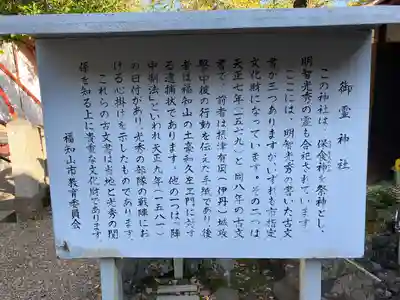 御霊神社
この神社は、保食神を祭神とし、
明智光秀の霊も合祀されています。
ここには、明智光秀の書いた古文
書が三つありますが、いずれも市指定
文化財になっています。その二つは
天正七年(一五七九)と同八年の古文
書で、前者は摂津有岡(伊丹)城攻
撃中後の行動を伝えた手紙であり、後
者は福知山の土豪和久左衛門に対す
る逮捕状であります。他の一つは「陣
中制法」といわれ天正九年(一五八一)
の日付があり、光秀の部隊の戦陣にお
ける心掛けを示したものであります。
これらの古文書は当地と光秀の関
係を知る上に貴重な文化財であります。
福知山市教育委員会